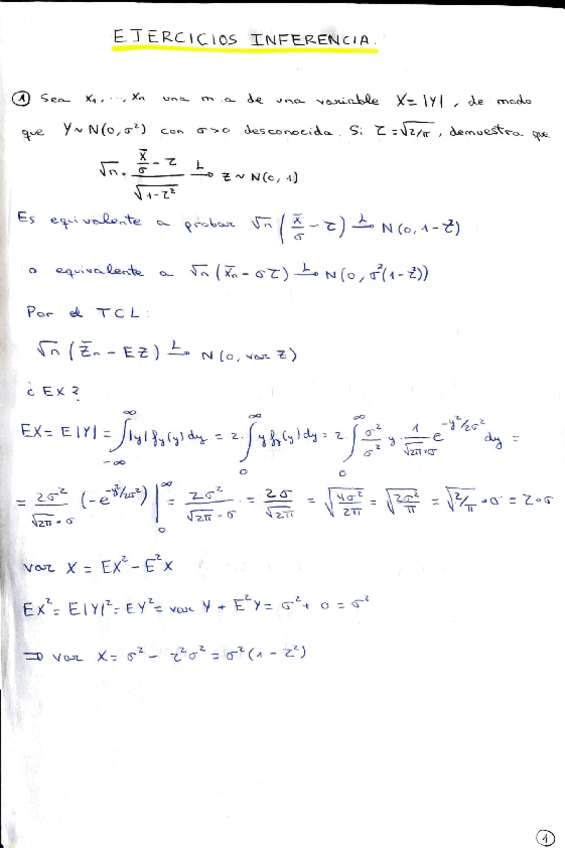 EJERCICIOS INFERENCIA.
① Sea x₁, ..., xₙ una m.a de una variable X = |Y|, de modo
que Y ~ N(0, σ²) con σ>0 desconocida. Si τ = √(2/π), demuestra que
√n · (x̄/σ - τ)/√(1-τ²) →ᴸ Z ~ N(0, 1)
Es equivalente a probar √n (x̄/σ - τ) →ᴸ N(0, 1-τ²)
o equivalente a √n (x̄ₙ - στ) →ᴸ N(0, σ²(1-τ²))
Por el TCL:
√n (Z̄ₙ - EZ) →ᴸ N(0, var Z)
¿ EX ?
EX = E|Y| = ∫_{-∞}^{∞} |y| f_Y(y) dy = 2 · ∫_0^∞ y f_Y(y) dy = 2 · ∫_0^∞ σ²/σ² y · 1/(√2π · σ) e^{-y²/2σ²} dy =
= 2σ²/(√2π · σ) (-e^{-y²/2σ²}) |_0^∞ = 2σ²/(√2π · σ) = 2σ/√2π = √(4σ²/2π) = √(2σ²/π) = √(2/π) · σ = τ · σ
var X = EX² - E²X
EX² = E|Y|² = EY² = var Y + E²Y = σ² + 0 = σ²
⇒ var X = σ² - τ²σ² = σ²(1 - τ²)
1